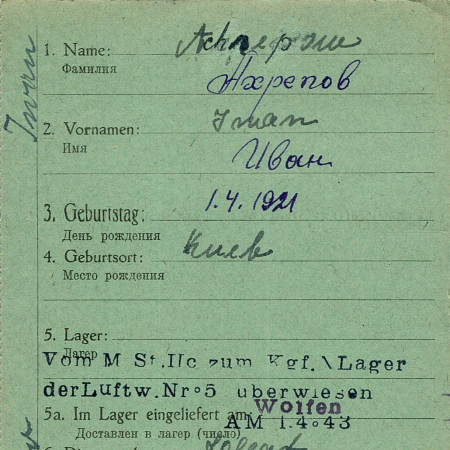 1. Name:
Фамилия
Ахрепов
2. Vornamen:
Имя
Iwan
Иван
3. Geburtstag: 1.4.1921
День рождения
4. Geburtsort: Киев
Место рождения
5. Lager:
Лагерь
Vom M St.IIc zum Kgf.\Lager
der Luftw.Nr°5 überwiesen
5a. Im Lager eingeliefert am: Wolfen
AM 1.4.43
Доставлен в лагерь (число)